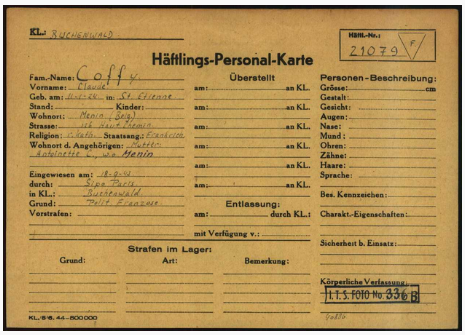 KL.: BUCHENWALD
Häftl.-Nr.:
21079
F
Häftlings-Personal-Karte
Fam.-Name: Coffy
Vorname: Claude
Geb. am: in: St. Etienne
Stand: Kinder:
Wohnort: Menin (Belg.)
Strasse:
Religion: r. kath. Staatsang.: Frankreich
Wohnort d. Angehörigen: Mutter:
Antoinette C., w.o. Menin
Eingewiesen am:
durch: Sipo Paris
in KL.: Buchenwald
Grund: Polit. Franzose
Vorstrafen:
Überstellt
am: an KL.
am: an KL.
am: an KL.
am: an KL.
am: an KL.
am: an KL.
am: an KL.
Entlassung:
am: durch KL.:
mit Verfügung v.:
Personen-Beschreibung:
Grösse: cm
Gestalt:
Gesicht:
Augen:
Nase:
Mund:
Ohren:
Zähne:
Haare:
Sprache:
Bes. Kennzeichen:
Charakt.-Eigenschaften:
Sicherheit b. Einsatz:
Körperliche Verfassung:
Strafen im Lager:
Grund: Art: Bemerkung:
I.T.S. FOTO No. 336 B
KL./5/6. 44-500000